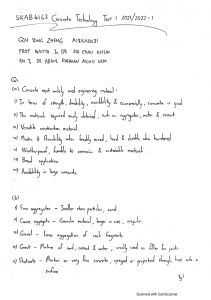 SKAB 4163 Concrete Technology Test 1 2021/2022-1
GOH YONG ZHENG A19KA0031
PROF. MADYA I. DR
Q1
(a) Concrete most widely used engineering material :
i) In terms of strength, durability, availability & economically, concrete is good.
ii) The materials required easily obtained, such as aggregates, water & cement.
iii) Versatile construction material.
iv) Plastic & flexibility when freshly mixed, hard & durable when hardened.
v) Weatherproof, durable to corrosion & sustainable materials.
vi) Broad application
vii) Availability in large amounts.
(b)
i) Fine aggregates - Smaller stone particles, sand.
ii) Coarse aggregate - Granular material, larger in size, irregular.
iii) Gravel - Loose aggregation of rock fragments
iv) Grout - Mixture of sand, cement & water, usually used as filler for joints.
v) Shotcrete - Mortar or very fine concrete, sprayed or projected through hose onto a
surface
Scanned with CamScanner